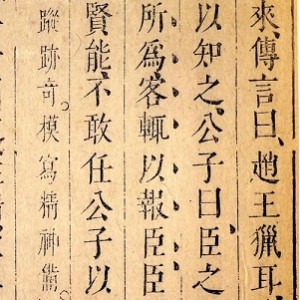 來傳言曰趙王獵耳
以知之公子曰臣之
所為客輒以報臣臣
賢能不敢任公子以
蹤跡奇。模寫精神儁